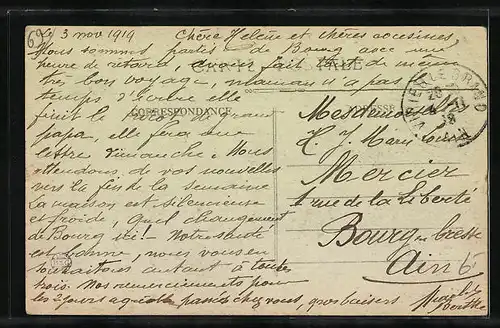 le 3 nov 1919 Chère Hélène et chères
Nous sommes partis de Bourg avec une
heure de retard, avons fait
très bon voyage, maman n'a pas
temps d'écrire elle
finit le de grand
papa, elle fera une
lettre dimanche. Nous
attendons de vos nouvelles
vers la fin de la semaine
La maison est silencieuse
et froide, quel changement
de Bourg ici! Notre santé
est bonne, nous vous en
souhaitons autant à toutes
trois. Nos remerciements pour
les 2 jours passés chez vous, gros baisers
CARTE POSTALE
CORRESPONDANCE
ADRESSE
Mesdemoiselles
H. J. Marie Louise
Mercier
rue de la Liberté
Bourg en Bresse
Ain